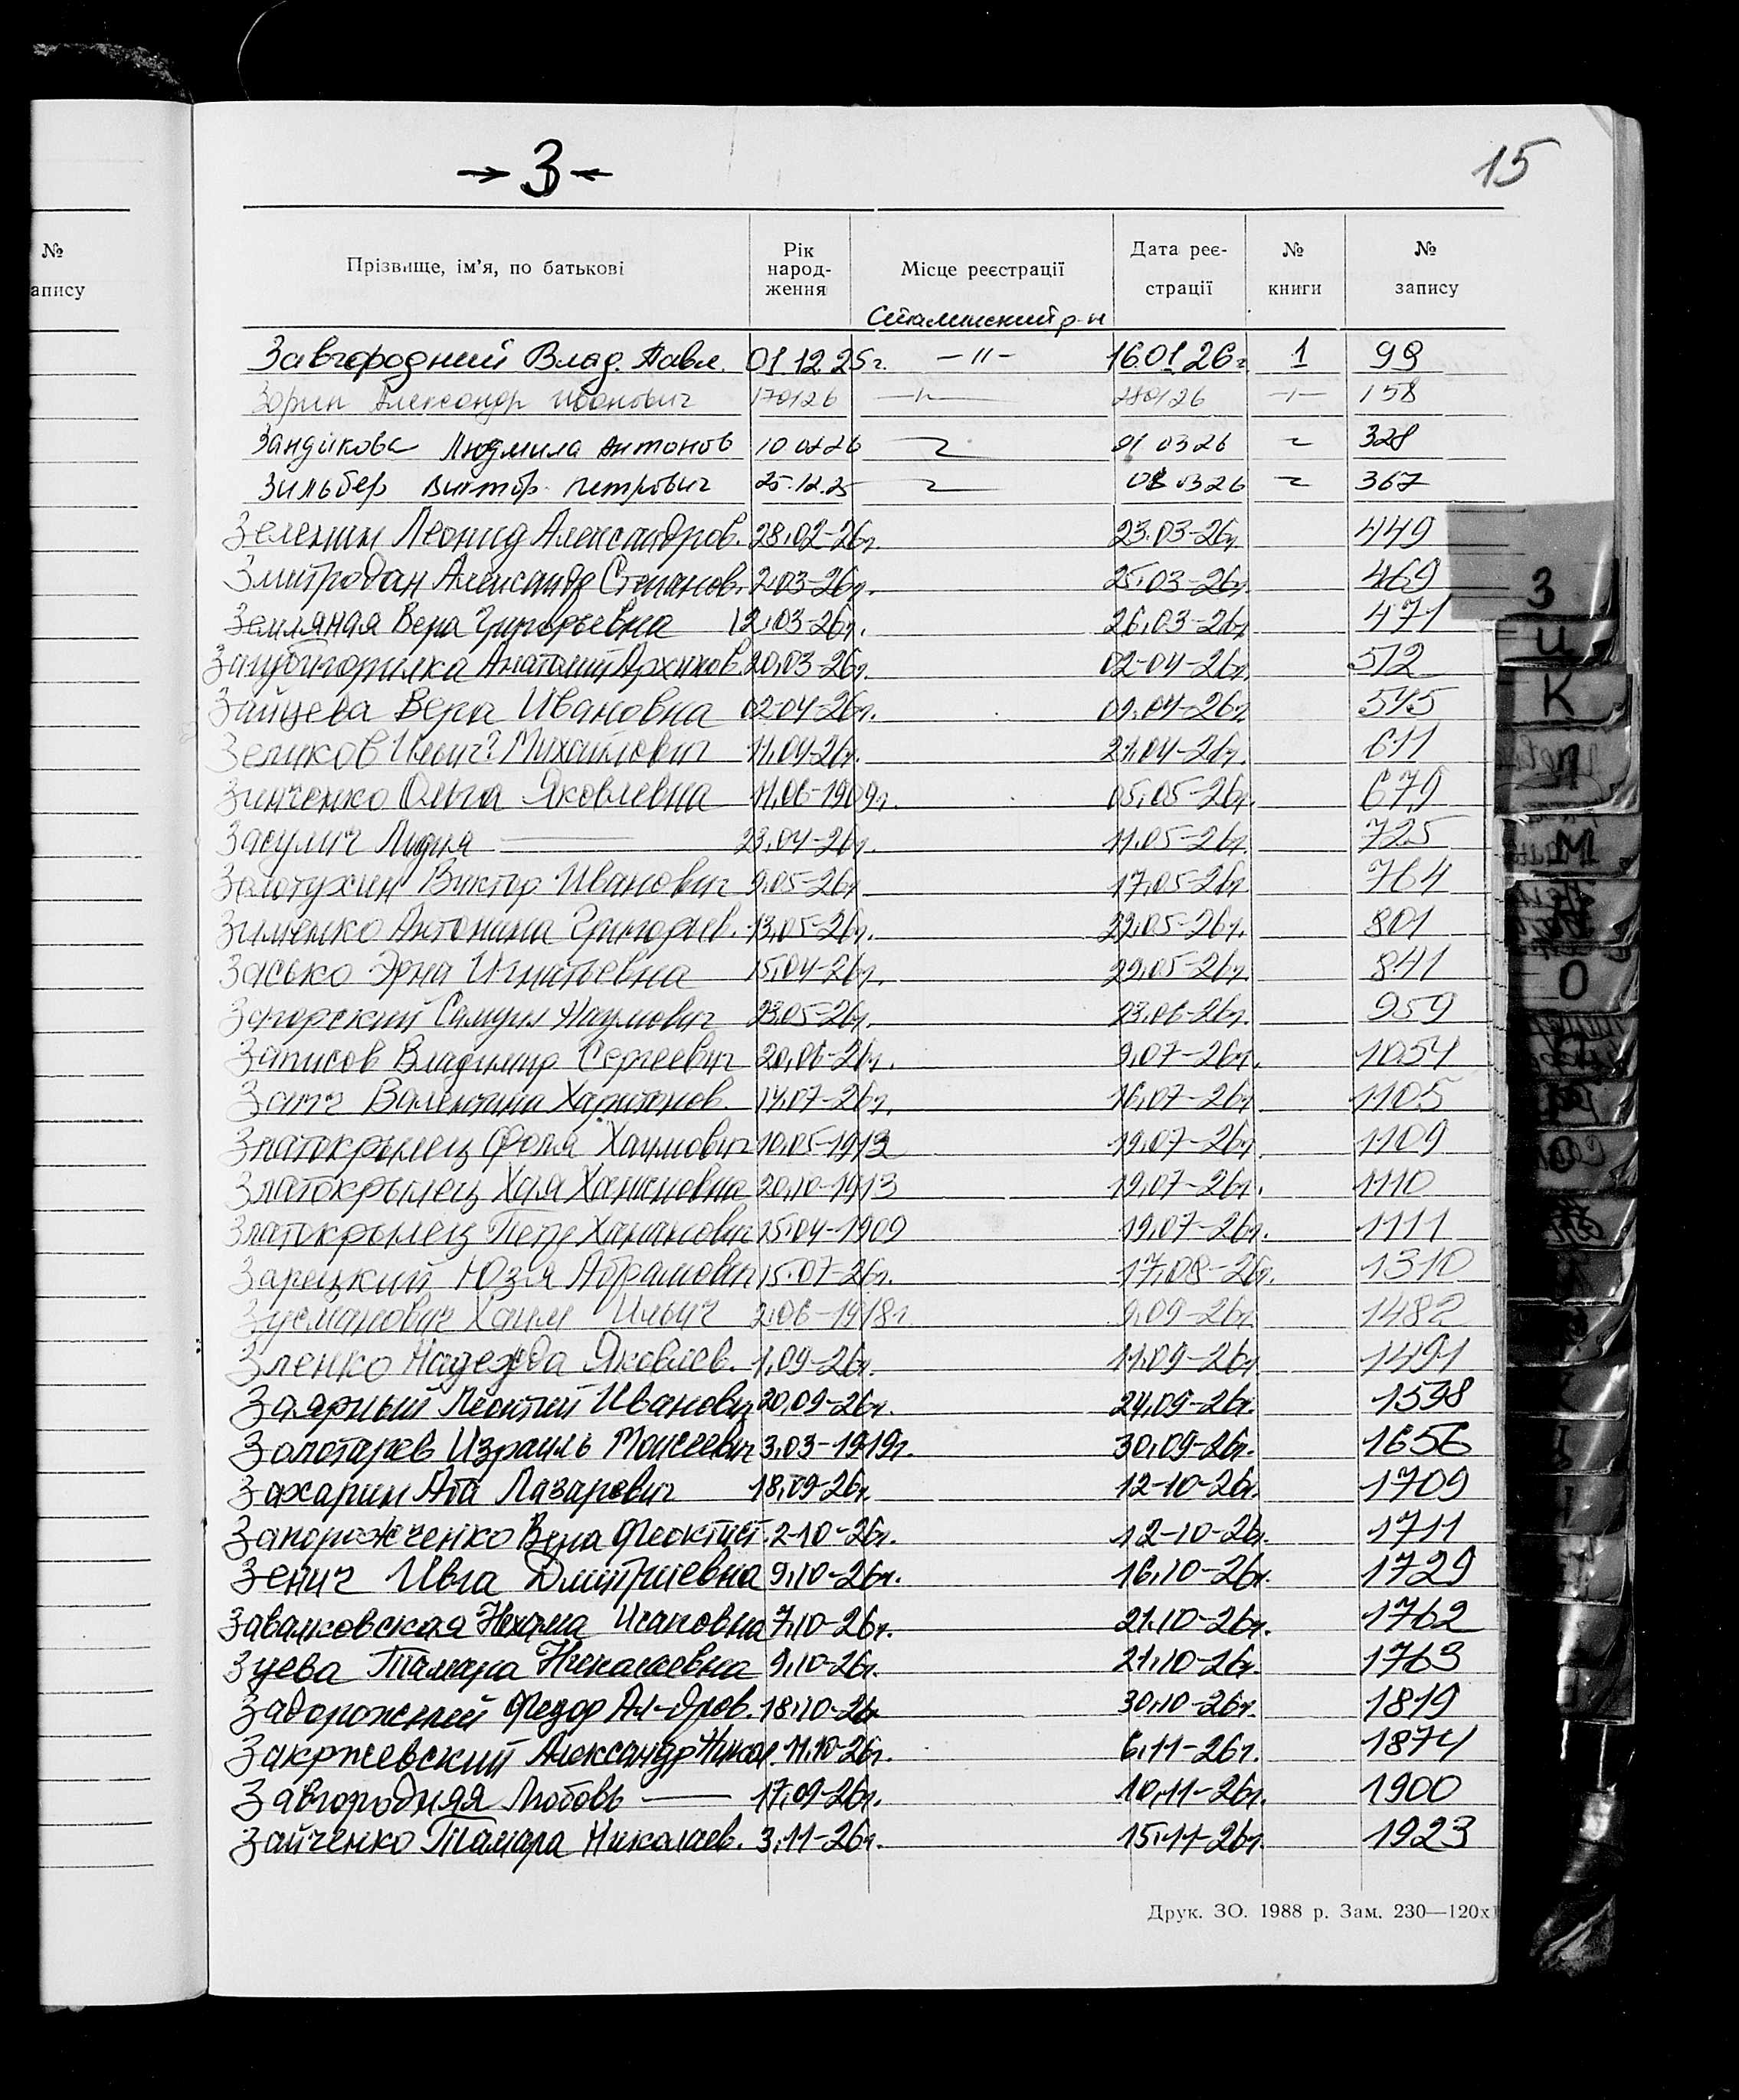 → З ←
15
№
апису
Прізвище, ім'я, по батькові
Рік народ- ження
Місце реєстрації
Дата реє- страції
№ книги
№ запису
Сталинский р-н
Завгородний Влад. Павл. 01.12.25г. —〃— 16.01.26г. 1 99
Зорин Александр Иванович 170126 —〃— 280126 —〃— 158
Людмила Антонов 01 03 26 328
Зильбер Виктор Петрович 25.12.25 03 26 367
Зеленин Леонид Александров. 28.02-26г. 23.03-26г. 449
Змитродан Александр Степанов. 2.03-26г. 25.03-26г. 469
Земляная Вера Григорьевна 12.03-26г. 26.03-26г. 471
Анатолий Архипов. 20.03-26г. 02-04-26г. 512
Зайцева Вера Ивановна 02-04-26г. 04-26г. 545
Зеликов Ильич? Михайлович 11.04-26г. 21.04-26г. 611
Зинченко Ольга Яковлевна 11.06-1909г. 05.05-26г. 679
Засулич Лидия —— 23.04-26г. 11.05-26г. 725
Золотухин Виктор Иванович 9.05-26г. 17.05-26г. 764
Антонина Григорьев. 13.05-26г. 22.05-26г. 801
Засько Эрна Игнатьевна 15.04-26г. 29.05-26г. 841
Загорский Самуил Наумович 23.05-26г. 23.06-26г. 959
Записов Владимир Сергеевич 20.06-26г. 9.07-26г. 1054
Валентина Харитонов. 14.07-26г. 16.07-26г. 1105
Златокрылец Фоля Хаимович 10.05-1913 19.07-26г. 1109
Златокрылец Хая 20.10-1913 19.07-26г. 1110
Златокрылец Петр Хананович 15.04-1909 19.07-26г. 1111
Зарецкий Юзя Абрамович 15.07-26г. 17.08-26г. 1310
Зусманович Хаим Ильич 2.06-1918г. 9.09-26г. 1482
Зленко Надежда Яковлев. 1.09-26г. 11.09-26г. 1491
Заярный Леонтий Иванович 20.09-26г. 24.09-26г. 1598
Золотарев Израиль Моисеевич 3.03-1919г. 30.09-26г. 1656
Захарин Ата Лазаревич 18.09-26г. 12-10-26г. 1709
Запорожченко Вера Феоктист. 2-10-26г. 12-10-26г. 1711
Зенич Ивга Дмитриевна 9.10-26г. 16.10-26г. 1729
Завалковская Нехама Исаповна 7.10-26г. 21.10-26г. 1762
Зуева Тамара Николаевна 9.10-26г. 21.10-26г. 1763
Задорожный Федор Ал-дров. 18.10-26г. 30.10-26г. 1819
Закржевский Александр Никол. 11.10-26г. 6.11-26г. 1874
Завгородняя Любовь —— 17.09-26г. 10.11-26г. 1900
Зайченко Тамара Николаев. 3.11-26г. 15.11-26г. 1923
Друк. ЗО. 1988 р. Зам. 230—120х
З
И
К
Л
М
О